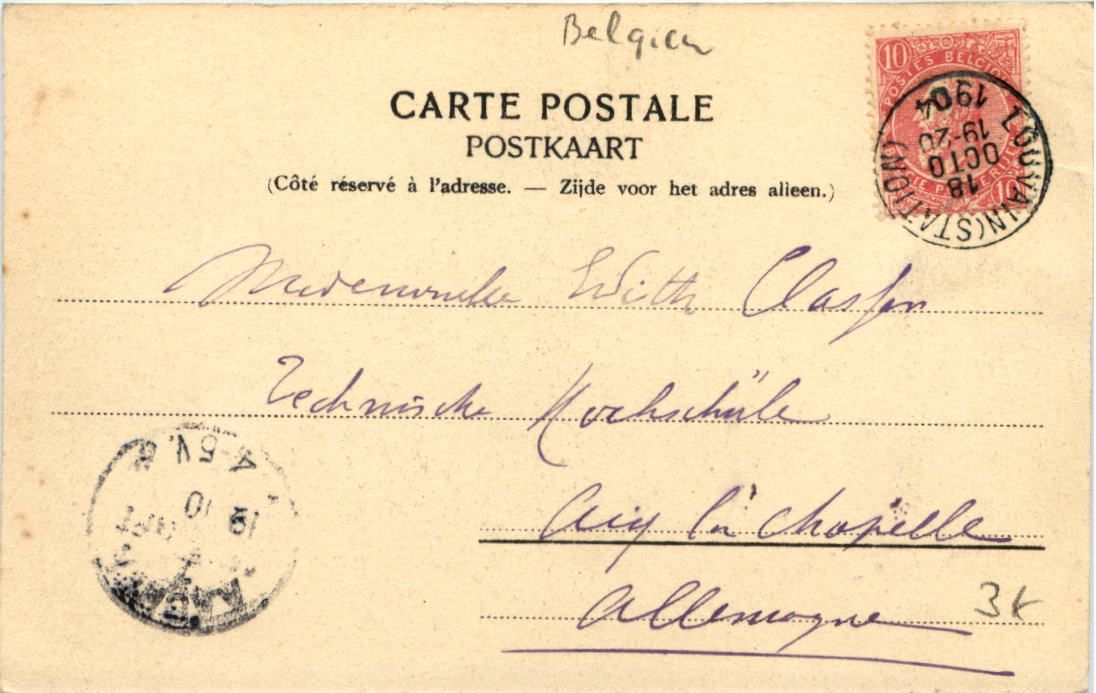 Belgien
CARTE POSTALE
POSTKAART
(Côté réservé à l'adresse. — Zijde voor het adres alleen.)
10 POSTES BELGIQUE
10
LOUVAIN (STATION)
18
OCTO
19-20
1904
Classen
Technische Hochschüle
Aix la Chapelle
Allemagne
3 K
AACHEN
19
10
4-5 V.